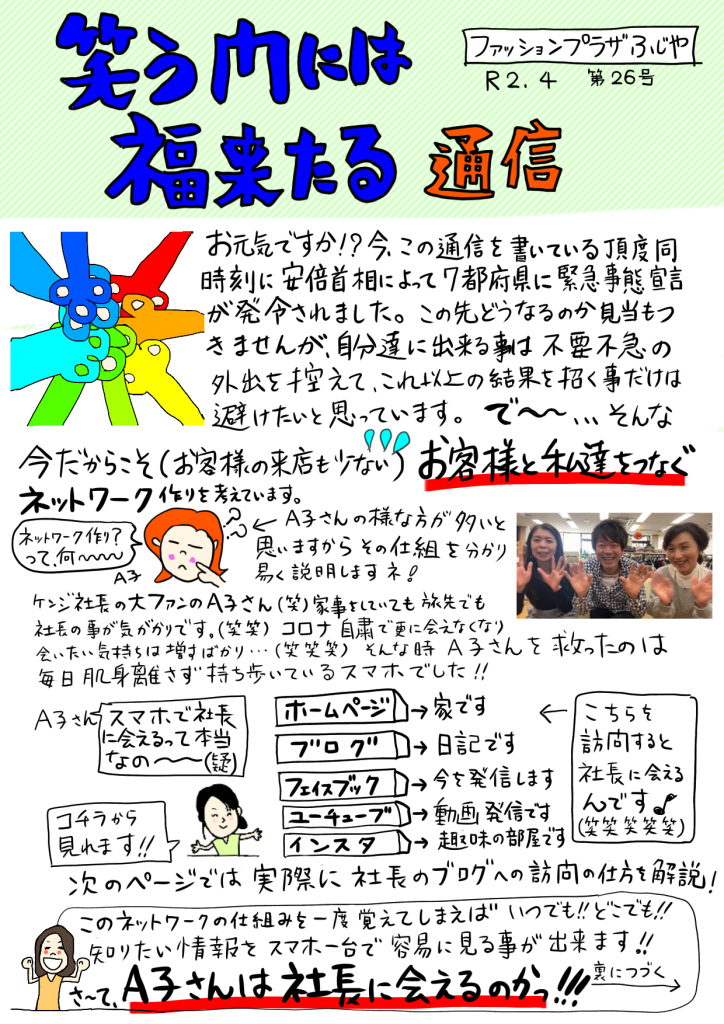 笑う門には
福来たる 通信
ファッションプラザふじや
R2.4 第26号
お元気ですか!?今、この通信を書いている頂度同
時刻に安倍首相によって7都府県に緊急事態宣言
が発令されました。この先どうなるのか見当もつ
きませんが、自分達に出来る事は不要不急の
外出を控えて、これ以上の結果を招く事だけは
避けたいと思っています。で〜〜...そんな
今だからこそ(お客様の来店も少ない)お客様と私達をつなぐ
ネットワーク作りを考えています。
ネットワーク作り?
って、何〜〜〜
A子
??
← A子さんの様な方が多いと
思いますからその仕組を分かり
易く説明しますネ!
ケンジ社長の大ファンのA子さん(笑)家事をしていても旅先でも
社長の事が気がかりです。(笑笑) コロナ自粛で更に会えなくなり
会いたい気持ちは増すばかり…(笑笑笑) そんな時A子さんを救ったのは
毎日肌身離さず持ち歩いているスマホでした!!
A子さん
スマホで社長
に会えるって本当
なの〜〜(疑)
コチラから
見れます!!
ホームページ→家です
ブログ→日記です
フェイスブック→今を発信します
ユーチューブ→動画発信です
インスタ→趣味の部屋です
←
こちらを
訪問すると
社長に会える
んです♪
(笑笑笑笑笑)
次のページでは実際に社長のブログへの訪問の仕方を解説!
このネットワークの仕組みを一度覚えてしまえばいつでも!!どこでも!!
知りたい情報をスマホ一台で容易に見る事が出来ます!!
さ〜て、A子さんは社長に会えるのかっ!!!
裏につづく
→